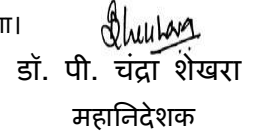 ा।
डॉ. पी. चंद्रा शेखरा
महानिदेशक